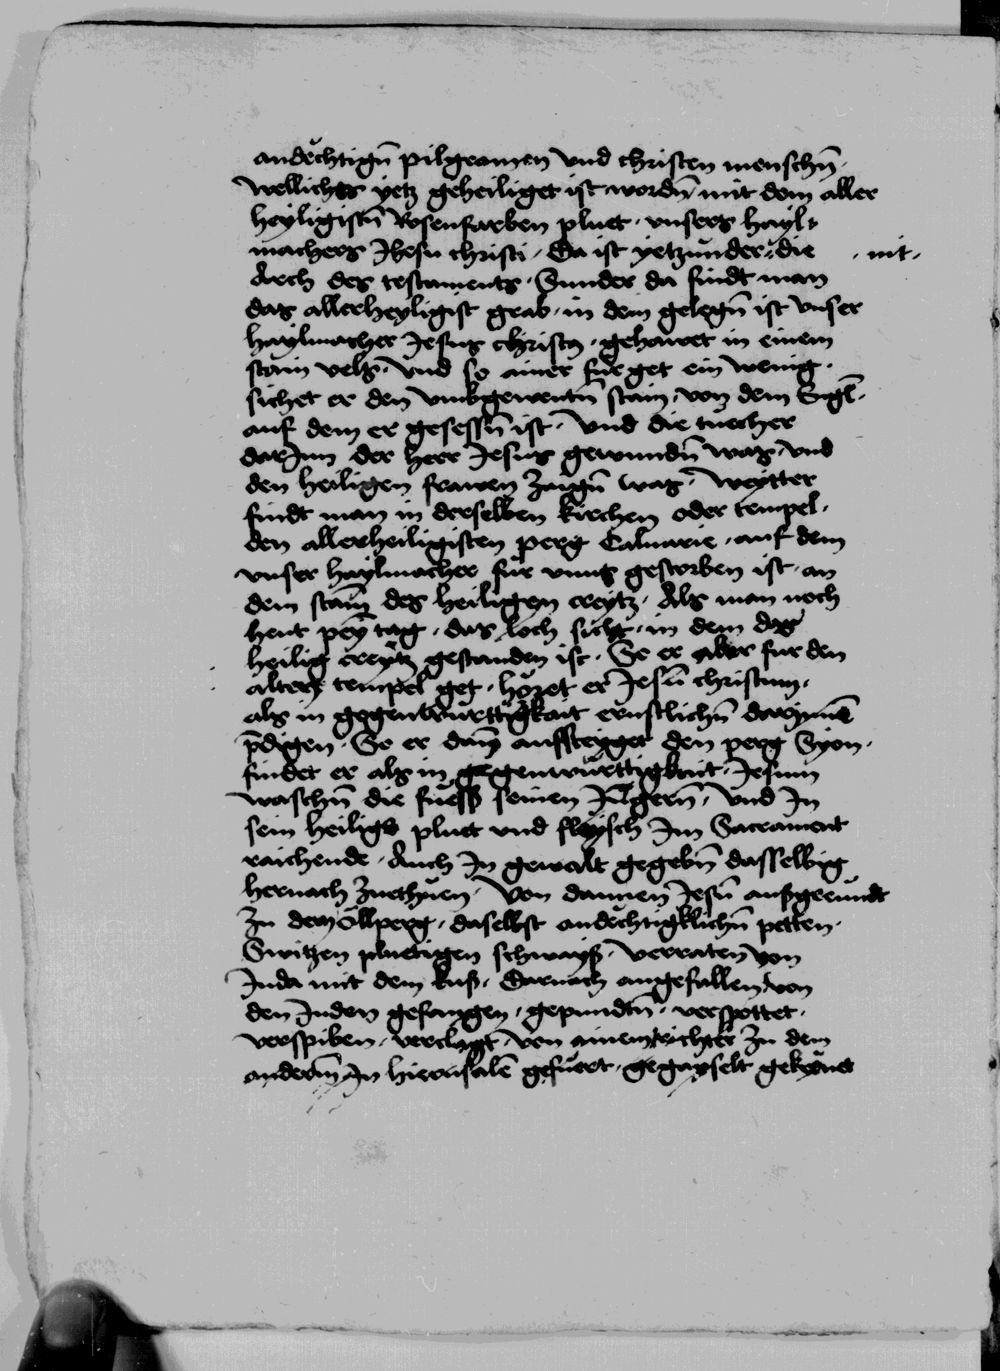 andechtign̄ pilgramen vnd christen menschn̄ ·
wellichs yetz geheiliget ist wordn̄ mit dem aller
heyligistn̄ Rosenfarben pluet · vnsers hayl-
machers Jhesu christi · Da ist yetzunder die · nit ·
Arch des testaments · Sunder da findt man
das allerheyligist grab · in dem gelegn̄ ist vnser
haylmacher Jesus christus · gehawet in einem
stain vels · Vnd so ainer für get ein wenig ·
sichet er den vmbgewentn̄ stain, von dem Engl ·
auf dem er gesessn̄ ist · Vnd die tuecher
darJnn der herr Jesus gewundn̄ was, vnd
den heiligen frawen zaign̄ was · Weytter
findt man in derselben kirchen oder tempel ·
den allerheiligisten perg Caluarie · auf dem
vnser haylmacher für vnns gestorben ist · an
dem stam̄ des heiligen creytz · Als man noch
heut pey tag · das loch sicht · in dem das
heilig creytz gestanden ist · So er aber fur den
alten tempel get · höret er Jesū christum ·
als in gegenwürttigkait ernstlichn̄ darJnnē
p̄digen · So er dan̄ auffsteyget den perg Syon ·
findet er als in gegenwürttigkait · Jesum
waschn̄ die füess seinen Jūgern̄ · Vnd Jn
sein heiligs pluet vnd fleysch Jm Sacrament
raichende · Auch Jn gewalt gegebn̄ dasselbig
hernach zuethuen · Von dannen Jesū außgeeundt
Zu dem Öllperg · daselbst andechtigklichn̄ petten ·
Switzen pluetigen schwayß · verraten von
Juda mit dem kuß · Darnach angefallen von
den Juden gefangen · gepundtn̄ · verspottet ·
verspiben · verclagt · von ainem richter zu dem
anderm̄ Jn hierusalē gefuert · gegayselt gekrönet